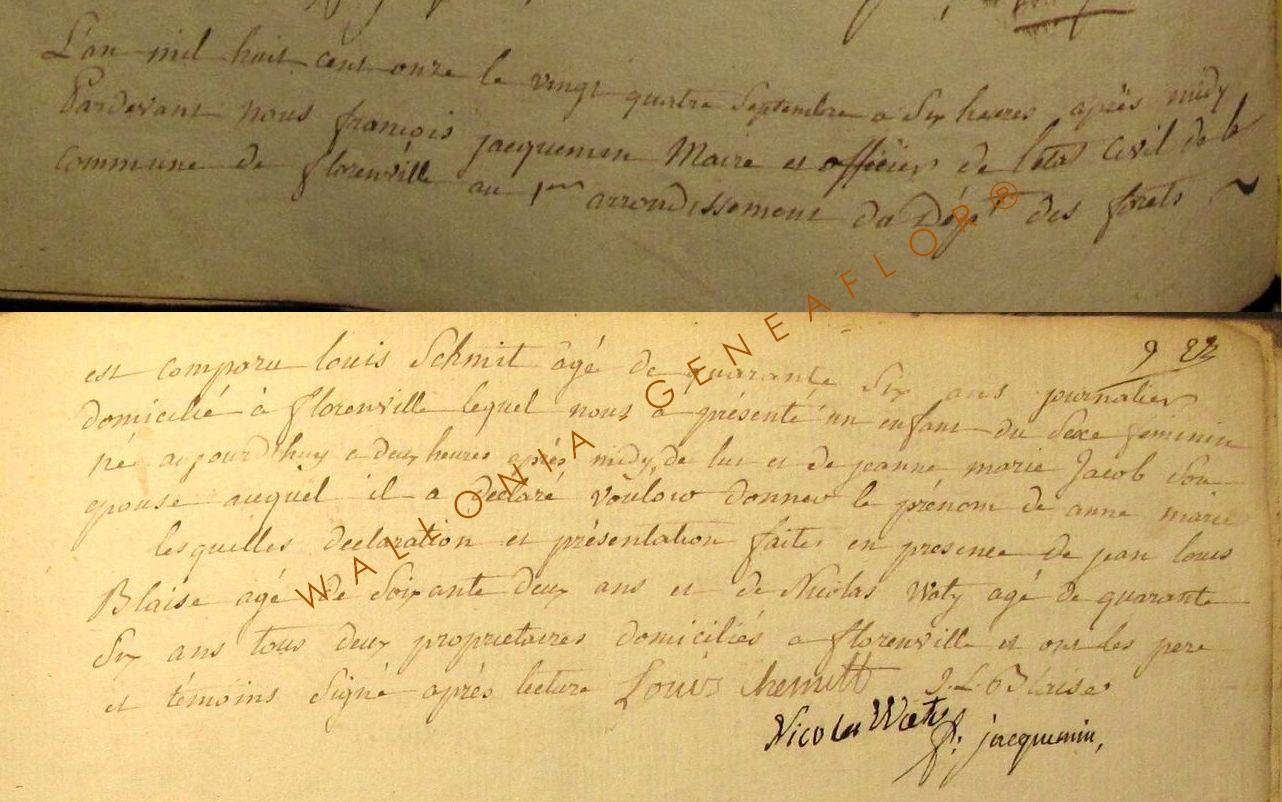 L'an mil huit cent onze le vingt quatre Septembre a Six heures après midy
Pardevant nous françois jacquemin Maire et officier de l'etat Civil de la
Commune de florenville au 1er arrondissement du Dépt des forets
9 22
est comparu louis Schmit âgé de quarante Six ans journalier
domicilié à florenville lequel nous a présenté un enfant du Sexe feminin
né aujourd'huy a deux heures après midy, de lui et de jeanne marie Jacob Son
epouse auquel il a declaré vouloir donner le prénom de anne marie
lesquelles declaration et présentation faites en presence de jean louis
Blaise agé de Soixante deux ans et de Nicolas Waty agé de quarante
Six ans tous deux proprietaires domiciliés a florenville et ont les pere
et témoins Signé après lecture Louis Chemitt J. L. Blaise
Nicolas Waty f: jacquemin,
WALLONIA - GENEAFLOR®